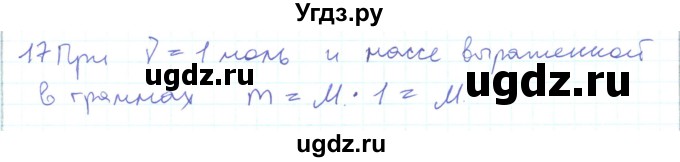 Угдз.ру
17 При ν = 1 моль и массе выраженной
ugdz.ru ugdz.ru
в граммах m = M · 1 = M.
ugdz.ru